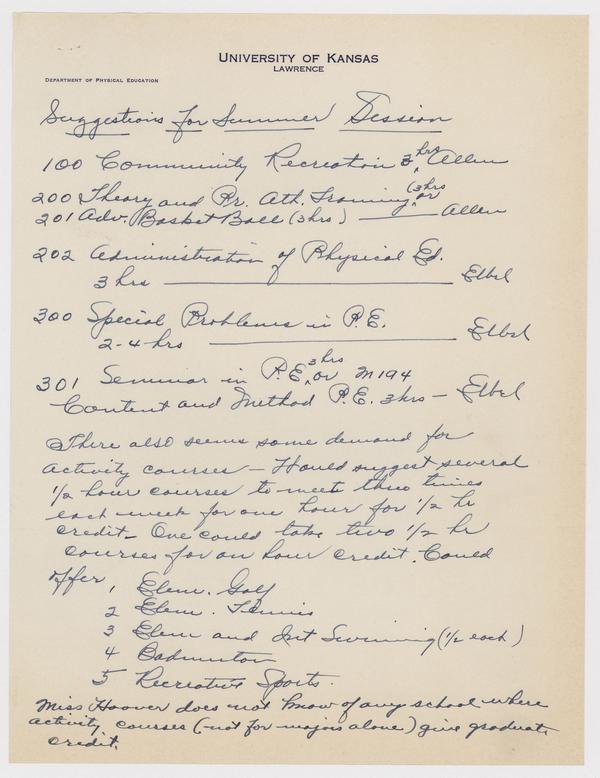 UNIVERSITY OF KANSAS
LAWRENCE
DEPARTMENT OF PHYSICAL EDUCATION
Suggestions for Summer Session
100 Community Recreation 3 hrs Allen
200 Theory and Pr. Ath. Training (3hrs or
201 Adv. Basket Ball (3hrs) — Allen
202 Administration of Physical Ed.
3 hrs — Elbel
300 Special Problems in P.E.
2-4-hrs — Elbel
301 Seminar in P.E. 3hrs or M194
Content and Method P.E. 3hrs — Elbel
There also seems some demand for
activity courses — Would suggest several
1/2 hour courses to meet three times
each week for one hour for 1/2 hr
credit — One could take two 1/2 hr
courses for an hour credit. Could
offer
1 Elem. Golf
2 Elem. Tennis
3 Elem and Int Swimming (1/2 each)
4 Badminton
5 Recreative Sports.
Miss Hoover does not know of any school where
activity courses (not for majors alone) give graduate
credit.